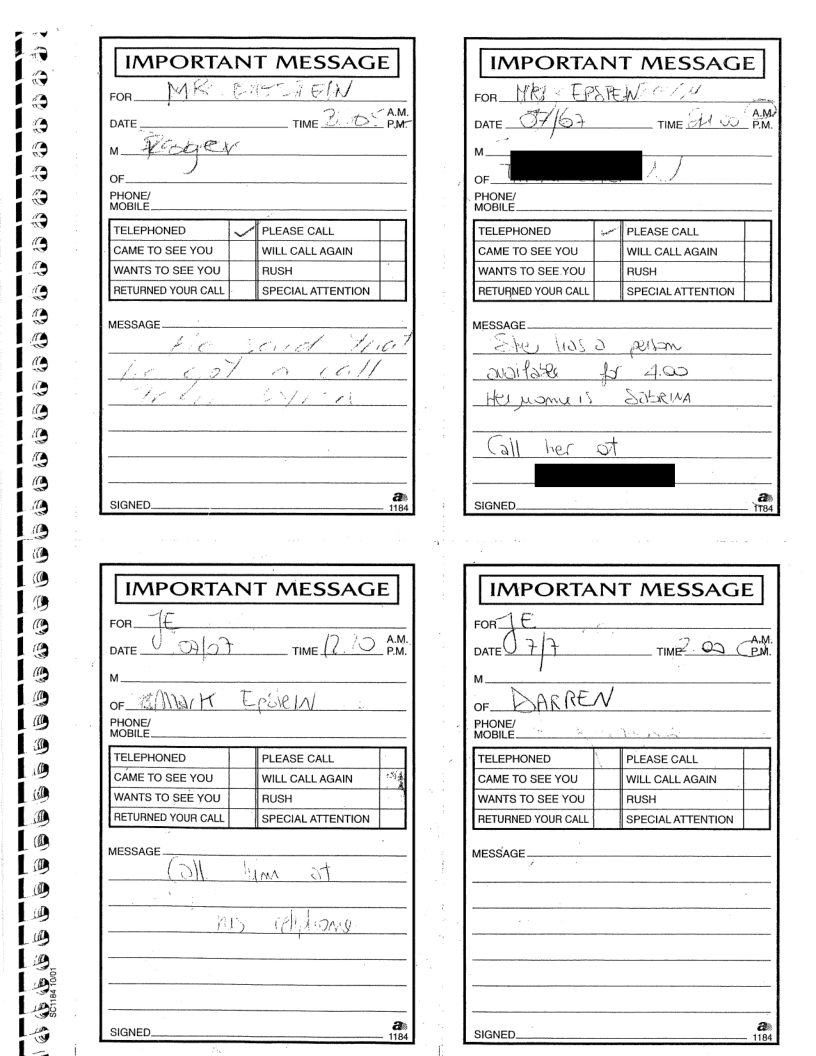 IMPORTANT MESSAGE
FOR MR.
DATE TIME A.M.
P.M.
M Roger
OF
PHONE/
MOBILE
TELEPHONED ✓ PLEASE CALL
CAME TO SEE YOU WILL CALL AGAIN
WANTS TO SEE YOU RUSH
RETURNED YOUR CALL SPECIAL ATTENTION
MESSAGE
He said that
he got a call
SIGNED
a
1184
IMPORTANT MESSAGE
FOR EPSTEIN
DATE 07/07 TIME A.M.
P.M.
M
OF
PHONE/
MOBILE
TELEPHONED ✓ PLEASE CALL
CAME TO SEE YOU WILL CALL AGAIN
WANTS TO SEE YOU RUSH
RETURNED YOUR CALL SPECIAL ATTENTION
MESSAGE
She has a person
available for 4.00
Her name is SABRINA
Call her at
SIGNED
a
1184
IMPORTANT MESSAGE
FOR JE
DATE 07/07 TIME 12.10 A.M.
P.M.
M
OF MARK Epstein
PHONE/
MOBILE
TELEPHONED PLEASE CALL
CAME TO SEE YOU WILL CALL AGAIN
WANTS TO SEE YOU RUSH
RETURNED YOUR CALL SPECIAL ATTENTION
MESSAGE
Call him at
his cellphone
SIGNED
a
1184
IMPORTANT MESSAGE
FOR JE
DATE 7/7 TIME 2.00 A.M.
P.M.
M
OF DARREN
PHONE/
MOBILE
TELEPHONED PLEASE CALL
CAME TO SEE YOU WILL CALL AGAIN
WANTS TO SEE YOU RUSH
RETURNED YOUR CALL SPECIAL ATTENTION
MESSAGE
SIGNED
a
1184
SC1184 10/01